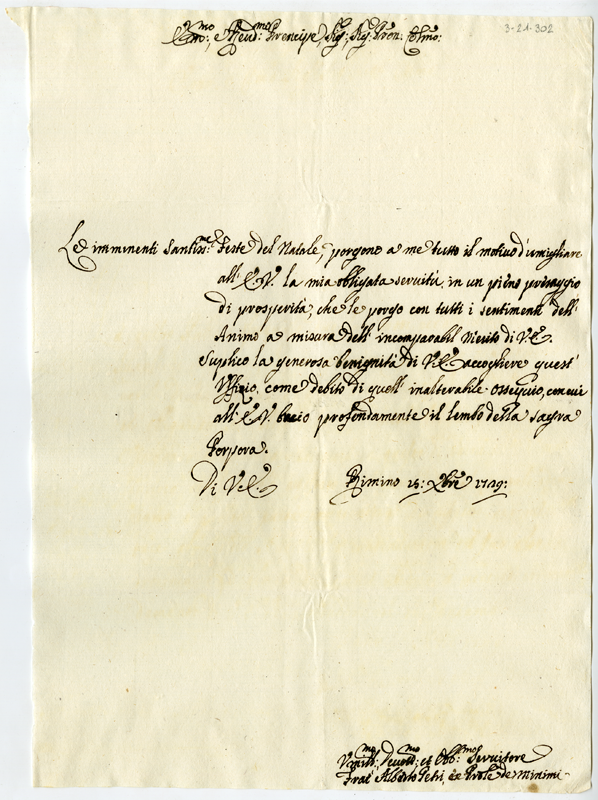 3-21-302
Em̃o:, e Reud:mo Prencipe, Sig:, Sig: Pron: Colmo:
Le imminenti Santiss:me Feste del Natale, porgono a me tutto il motivo d'umigliare
all' E. V. la mia obligata seruitù, in un pieno presaggio
di prosperità, che le porgo con tutti i sentimenti dell'
Animo a misura dell' incomparabil Merito di V. E.
Suplico la generosa benignità di V. E. accogliere quest'
Vffizio, come debito di quell' inalterabile ossequio, con cui
all' E. V. bacio profondamente il lembo della sagra
Porpora.
Di V. E. Rimino 15: Xbre 1719:
Vmill:mo Deuot:mo et Obb:mo Seruitore
Frat' Alberto de Minimi